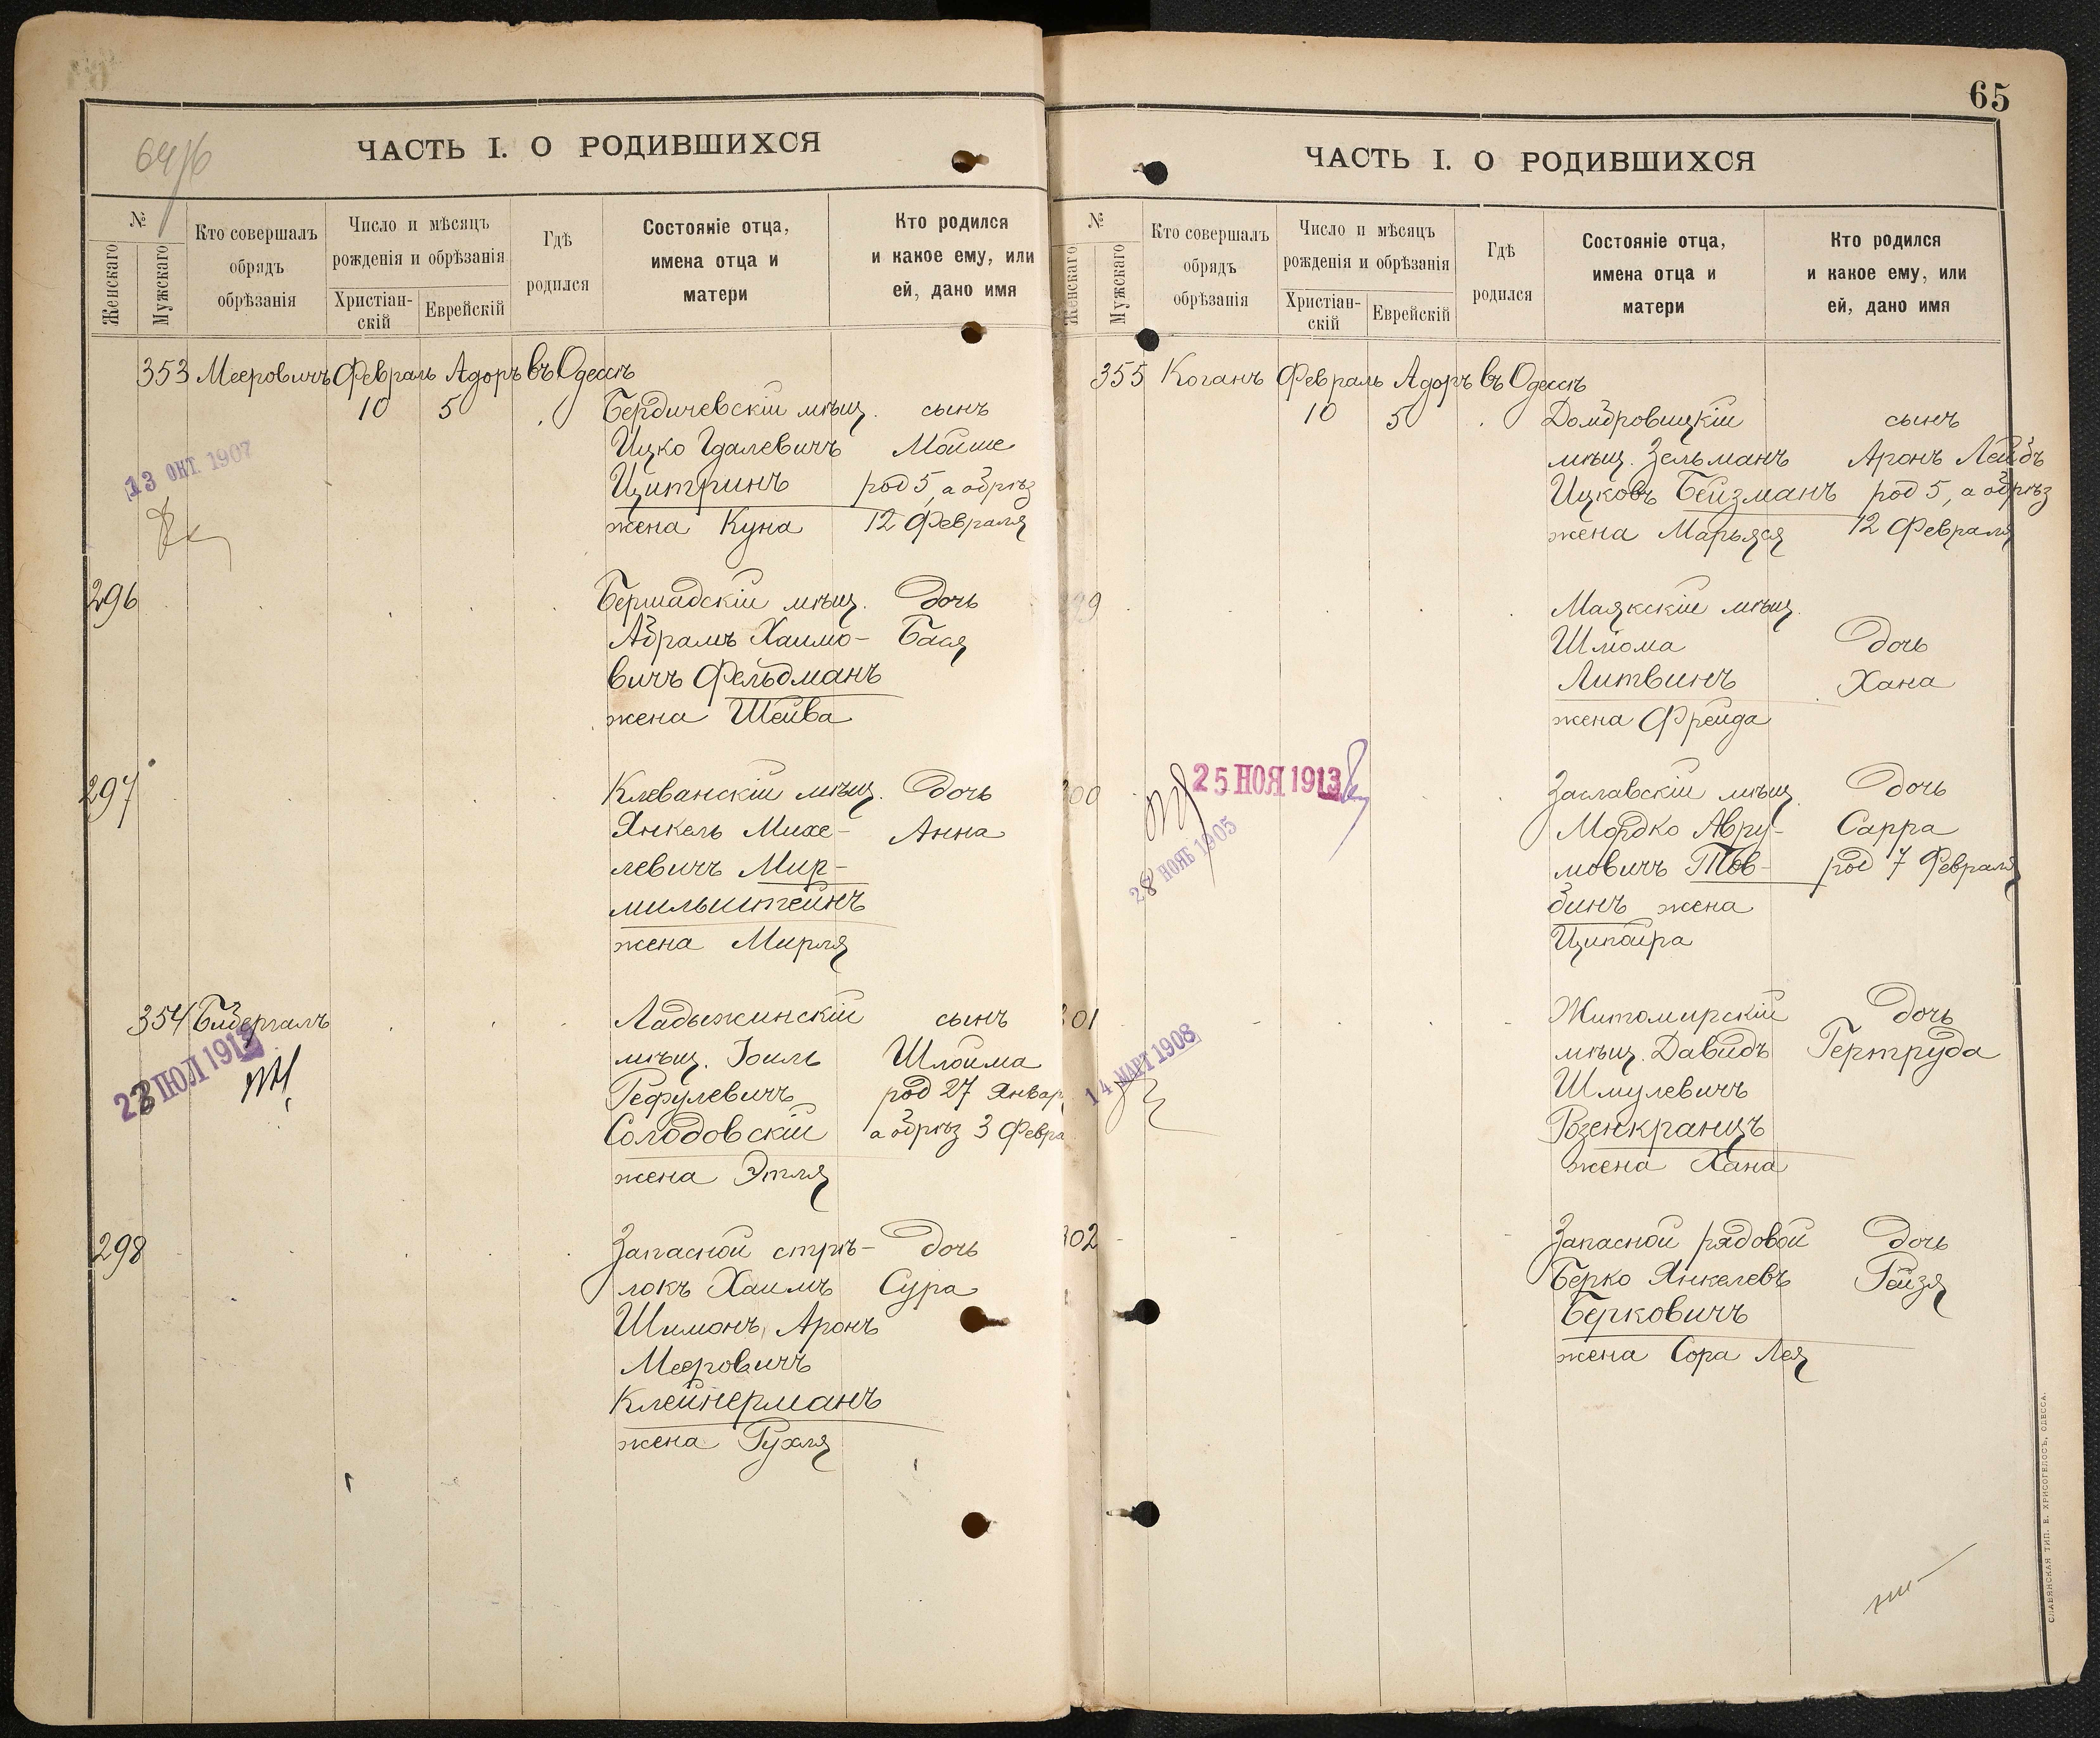 64/6
ЧАСТЬ I. О РОДИВШИХСЯ
№
Женскаго
Мужскаго
Кто совершалъ
обрядъ
обрѣзанія
Число и мѣсяцъ
рожденія и обрѣзанія
Христіан-
скій
Еврейскій
Гдѣ
родился
Состояніе отца,
имена отца и
матери
Кто родился
и какое ему, или
ей, дано имя
353 Мееровичъ Февраль Адоръ въ Одессѣ
10 5 Бердичевскій мѣщ. сынъ
Ицко Гдалевичъ Мойше
Цитринъ род 5, а обрѣз
жена Куна 12 Февраля
13 ОКТ. 1907
296 Бершадскій мѣщ. дочь
Абрамъ Хаимо- Бася
вичъ Фельдманъ
жена Шейва
297 Клеванскій мѣщ. дочь
Янкель Михе- Анна
левичъ Мир-
мильштейнъ
жена Мирля
354 Ладыжинскій сынъ
мѣщ. Іоиль Шлойма
Рефулевичъ род 27 Январ
Солодовскій а обрѣз 3 Февра
жена Этля
ІЮЛ 191
298 Запасной стрѣ- дочь
локъ Хаимъ Сура
Шимонъ, Аронъ
Мееровичъ
Клейнерманъ
жена Рухля
65
ЧАСТЬ I. О РОДИВШИХСЯ
№
Женскаго
Мужскаго
Кто совершалъ
обрядъ
обрѣзанія
Число и мѣсяцъ
рожденія и обрѣзанія
Христіан-
скій
Еврейскій
Гдѣ
родился
Состояніе отца,
имена отца и
матери
Кто родился
и какое ему, или
ей, дано имя
355 Коганъ Февраль Адоръ въ Одессѣ
10 5 Домбровицкій сынъ
мѣщ. Зельманъ Аронъ Лейбъ
Ицковъ Бейзманъ род 5, а обрѣз
жена Марьяся 12 Февраля
299 Маякскій мѣщ.
Шлома дочь
Литвинъ Хана
жена Фрейда
25 НОЯ 1913
28 НОЯБ 1905
300 Заславскій мѣщ. дочь
Мордко Авру- Сарра
мовичъ Тов- род 7 Февраля
бинъ жена
Ципойра
14 МАРТ 1908
301 Житомирскій дочь
мѣщ. Давидъ Гертруда
Шмулевичъ
Розенкранцъ
жена Хана
302 Запасной рядовой дочь
Берко Янкелевъ Рейзя
Берковичъ
жена Сора Лея
СЛАВЯНСКАЯ ТИП. Е. ХРИСОГЕЛОСЪ, ОДЕССА.